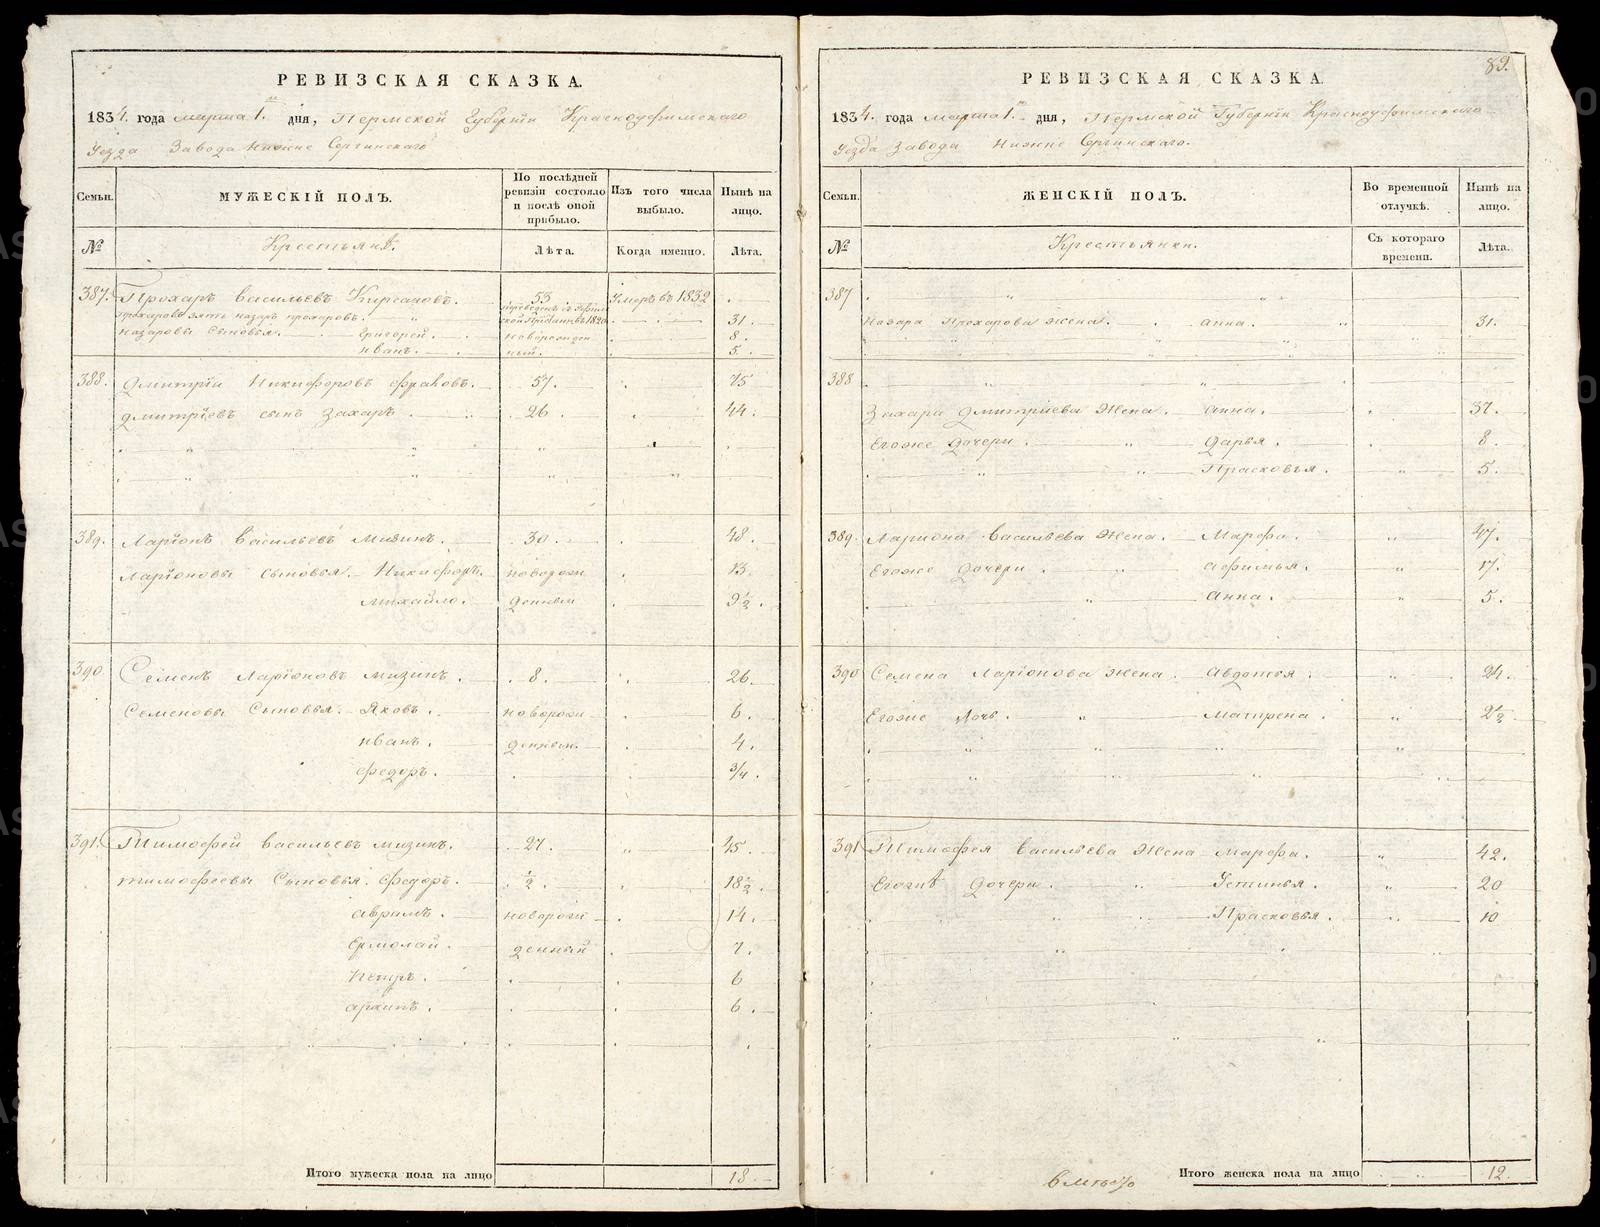 РЕВИЗСКАЯ СКАЗКА.
1834. года марта 1. дня, Пермской Губернiи Красноуфимскаго
Уезда Завода Нижне Сергинскаго
Семьи. МУЖЕСКIЙ ПОЛЪ. По последней ревизiи состояло и послѣ оной прибыло. Изъ того числа выбыло. Нынѣ на лицо.
№ Крестьяне. Лѣта. Когда именно. Лѣта.
387. Прохаръ Васильевъ Кирсановъ. 53 Умеръ въ 1832
Прохаровъ зять назаръ прохаровъ. 31.
назаровы Сыновья. Григорей. новорожден 8.
иванъ. ный. 5.
388. Дмитрiй Никифоровъ 57. 75
Дмитрiевъ сынъ Захаръ 26. 44.
389. Ларiонъ Васильевъ Мизинъ. 30. 48.
Ларiоновы Сыновья. Никифоръ. новорож 13.
Михайло. денныи 9½.
390 Семенъ Ларiоновъ Мизинъ. 8. 26.
Семеновы Сыновья. Яковъ. новорож 6.
иванъ. денныи. 4.
федоръ. 3/4.
391. Тимофей Васильевъ Мизинъ. 27. 45.
тимофеевы Сыновья. Федоръ. ½. 18½.
аврамъ. новорож 14.
Ермолай. денный 7.
Петръ. 6
архипъ. 6.
Итого мужеска пола на лицо 18
89.
РЕВИЗСКАЯ СКАЗКА
1834. года марта 1. дня, Пермской Губернiи Красноуфимскаго
Уезда Завода Нижне Сергинскаго.
Семьи. ЖЕНСКIЙ ПОЛЪ. Во временной отлучкѣ. Нынѣ на лицо.
№ Крестьянки. Съ котораго времени. Лѣта.
387
Назара Прохарова жена. анна. 31.
388
Захара Дмитрiева Жена. анна. 37.
Егоже Дочери. Дарья. 8.
Прасковья. 5.
389 Лариона Васильева Жена. Марфа. 47.
Егоже дочери. афимья. 17.
анна. 5.
390 Семена Ларiонова жена. авдотья. 24.
Егоже Дочь. Матрена. 2½
391 Тимофея Васильева Жена Марфа. 42.
Егоже Дочери. Устинья. 20
Прасковья. 10
Итого женска пола на лицо 12.